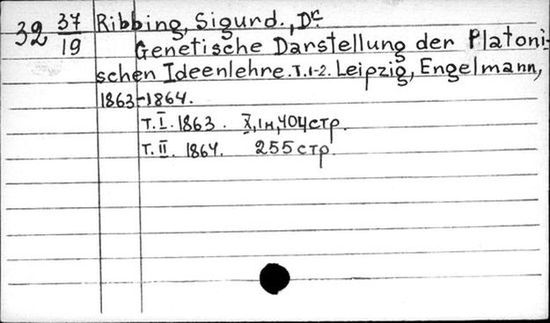 32 37/19 Ribbing, Sigurd., Dr
Genetische Darstellung der Platoni-
schen Ideenlehre. T.1-2. Leipzig, Engelmann,
1863-1864.
T. I. 1863. X, 1н, 404 стр.
T. II. 1864. 255 стр.